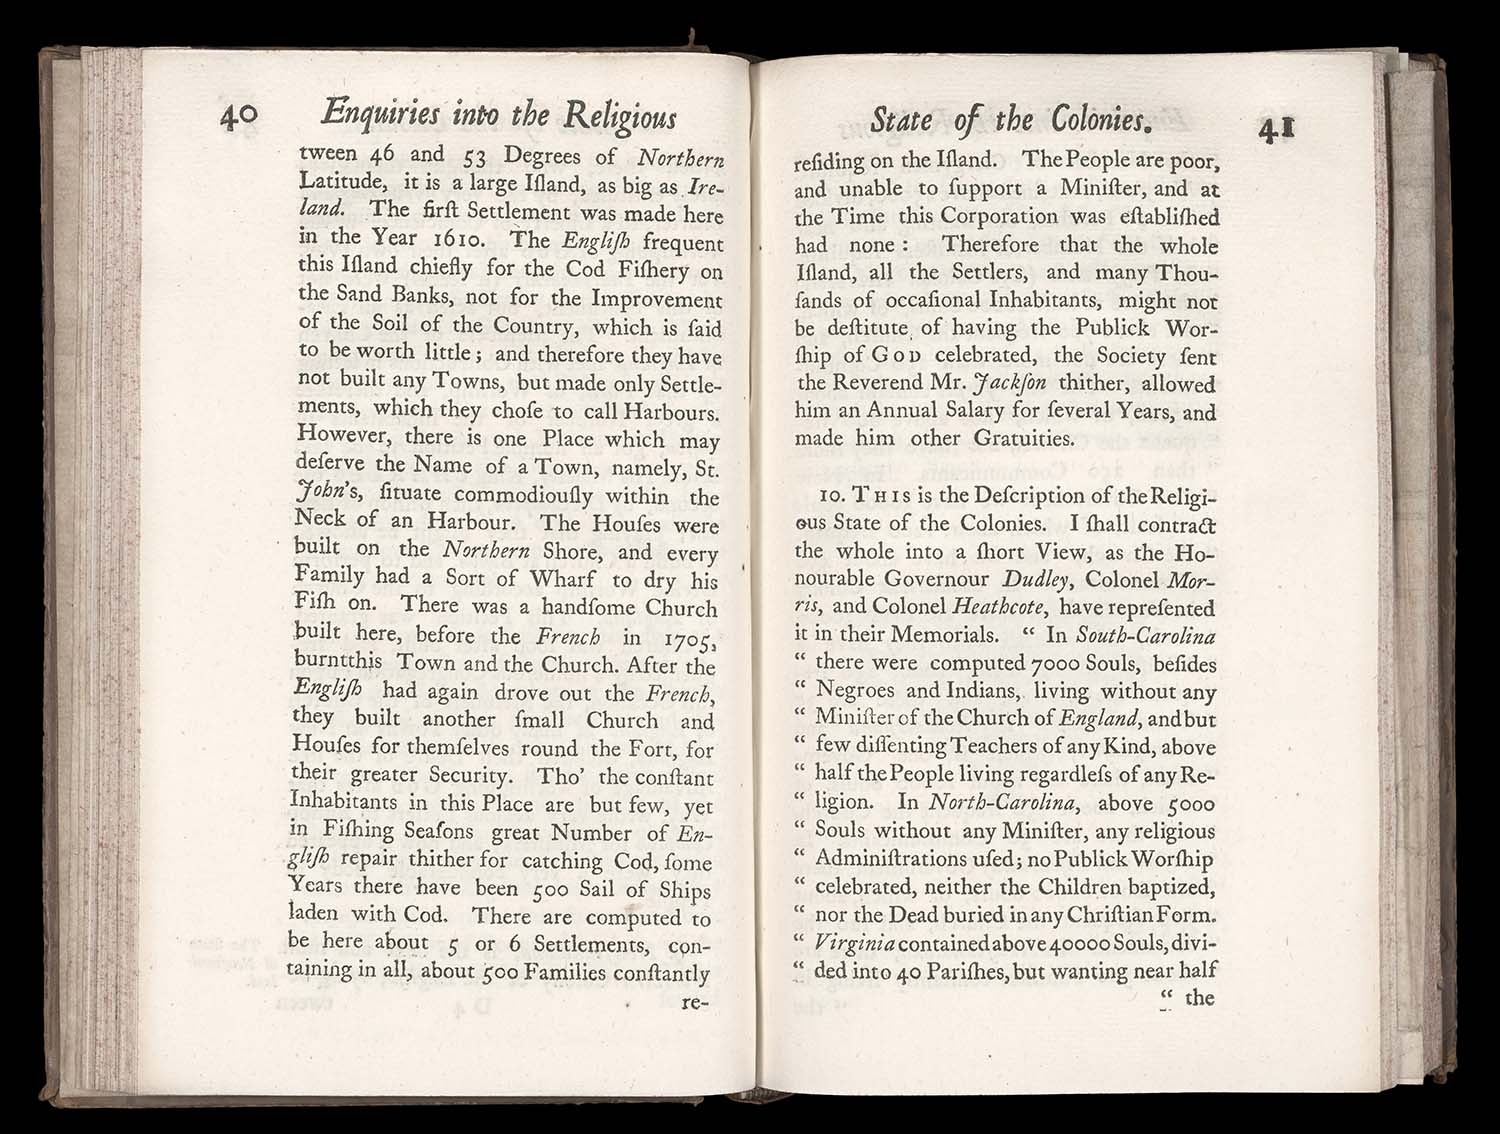 40 Enquiries into the Religious
tween 46 and 53 Degrees of Northern
Latitude, it is a large Iſland, as big as Ire-
land. The firſt Settlement was made here
in the Year 1610. The Engliſh frequent
this Iſland chiefly for the Cod Fiſhery on
the Sand Banks, not for the Improvement
of the Soil of the Country, which is ſaid
to be worth little; and therefore they have
not built any Towns, but made only Settle-
ments, which they choſe to call Harbours.
However, there is one Place which may
deſerve the Name of a Town, namely, St.
John's, ſituate commodiouſly within the
Neck of an Harbour. The Houſes were
built on the Northern Shore, and every
Family had a Sort of Wharf to dry his
Fiſh on. There was a handſome Church
built here, before the French in 1705,
burntthis Town and the Church. After the
Engliſh had again drove out the French,
they built another ſmall Church and
Houſes for themſelves round the Fort, for
their greater Security. Tho' the conſtant
Inhabitants in this Place are but few, yet
in Fiſhing Seaſons great Number of En-
gliſh repair thither for catching Cod, ſome
Years there have been 500 Sail of Ships
laden with Cod. There are computed to
be here about 5 or 6 Settlements, con-
taining in all, about 500 Families conſtantly
re-
State of the Colonies. 41
reſiding on the Iſland. The People are poor,
and unable to ſupport a Miniſter, and at
the Time this Corporation was eſtabliſhed
had none: Therefore that the whole
Iſland, all the Settlers, and many Thou-
ſands of occaſional Inhabitants, might not
be deſtitute of having the Publick Wor-
ſhip of GOD celebrated, the Society ſent
the Reverend Mr. Jackſon thither, allowed
him an Annual Salary for ſeveral Years, and
made him other Gratuities.
10. THIS is the Deſcription of the Religi-
ous State of the Colonies. I ſhall contract
the whole into a ſhort View, as the Ho-
nourable Governour Dudley, Colonel Mor-
ris, and Colonel Heathcote, have repreſented
it in their Memorials. “ In South-Carolina
“ there were computed 7000 Souls, beſides
“ Negroes and Indians, living without any
“ Miniſter of the Church of England, and but
“ few diſſenting Teachers of any Kind, above
“ half the People living regardleſs of any Re-
“ ligion. In North-Carolina, above 5000
“ Souls without any Miniſter, any religious
“ Adminiſtrations uſed; no Publick Worſhip
“ celebrated, neither the Children baptized,
“ nor the Dead buried in any Chriſtian Form.
“ Virginia contained above 40000 Souls, divi-
“ ded into 40 Pariſhes, but wanting near half
“ the